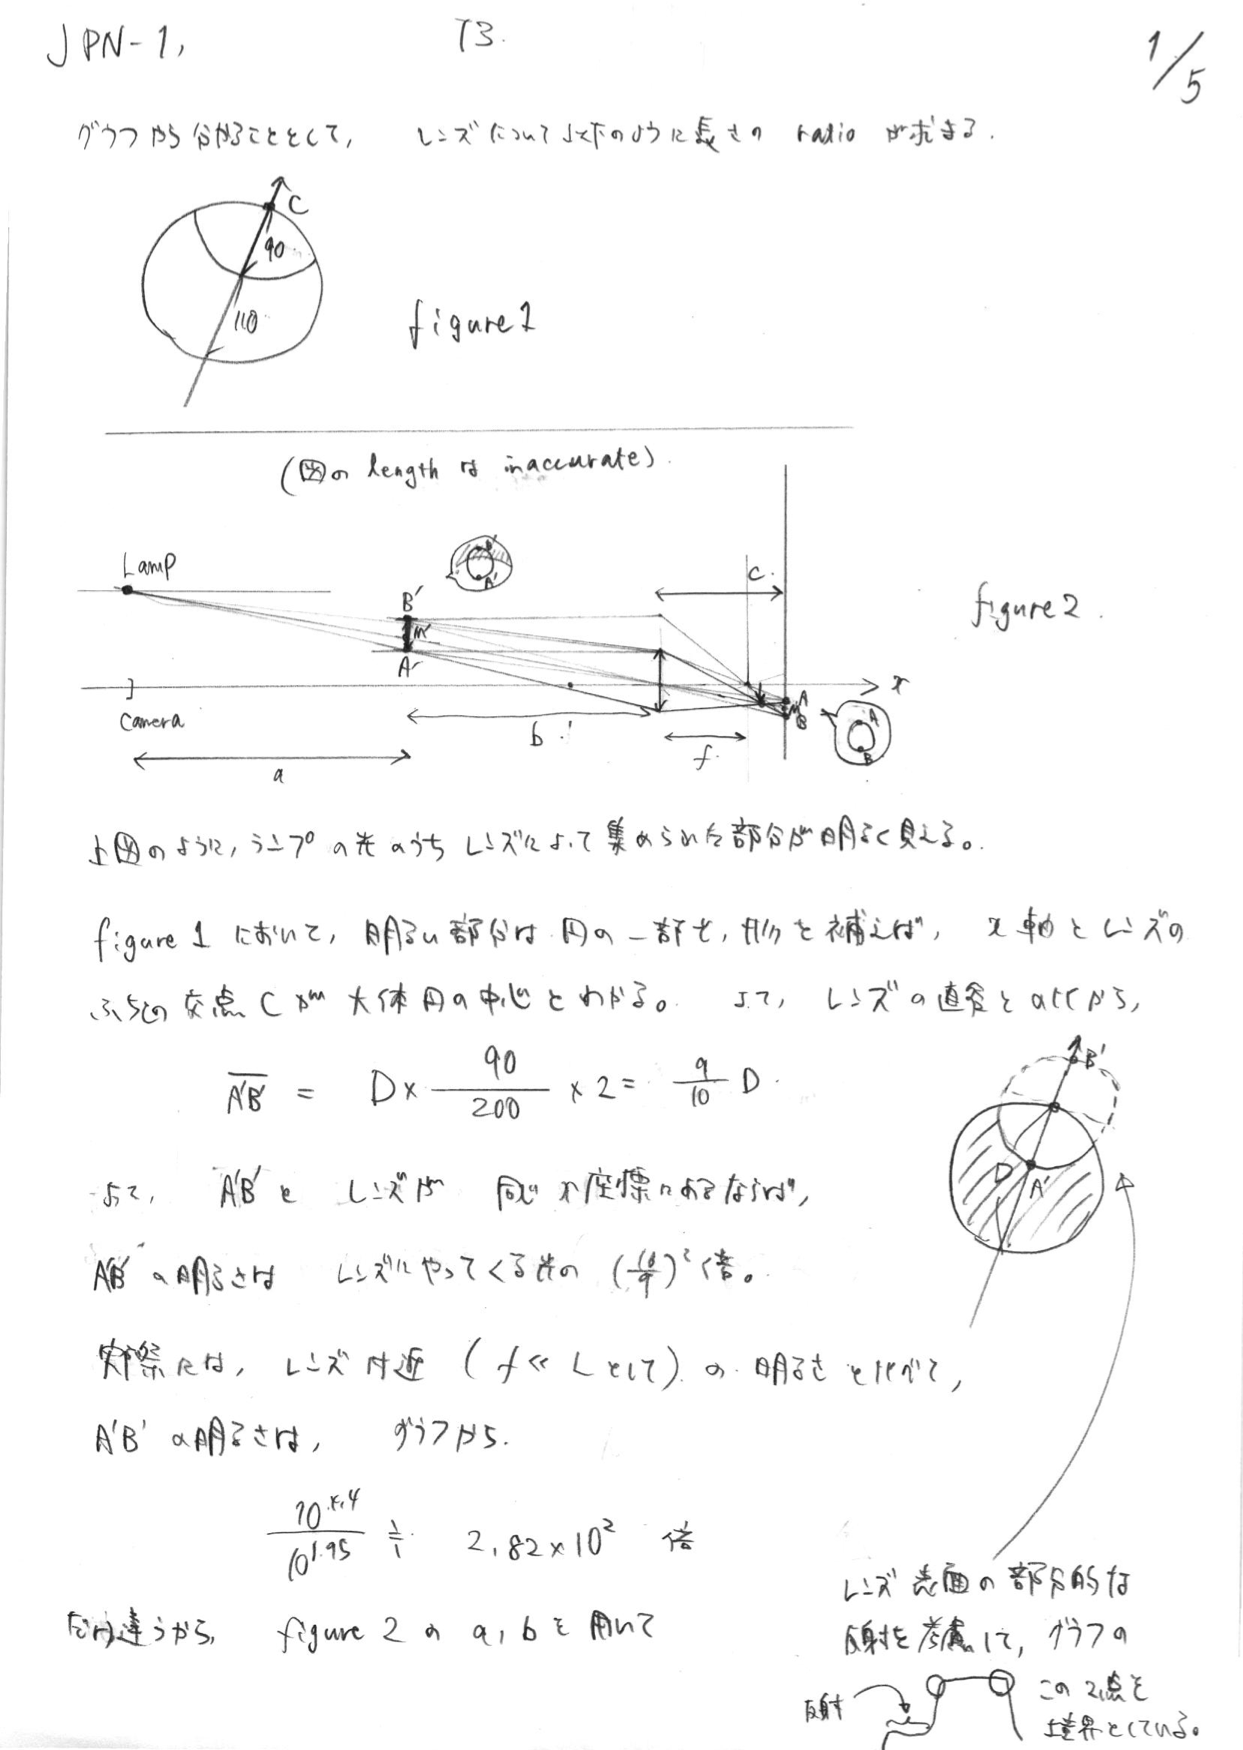 JPN-1,
T3.
1/5
グラフから分かることとして, レンズについて以下のように長さの ratio が求まる.
C
90
110
figure 1
(図の length は inaccurate).
Lamp
B'
A'
c.
figure 2.
B'
M'
A'
x
A
M
B
A
B
Camera
b
f.
a
上図のように, ランプの光のうちレンズによって集められた部分が明るく見える。
figure 1 において, 明るい部分は円の一部で, 形を補えば, x 軸とレンズの
ふちの交点 C が大体円の中心とわかる。 よって, レンズの直径と拡がから,
A'B' = D × 90/200 × 2 = 9/10 D.
B'
D
A'
よって, A'B' と レンズが 同じ x 座標にあるならば,
A'B' の明るさは レンズにやってくる光の (10/9)² 倍。
実際には, レンズ付近 (f ≪ L として) の明るさと比べて,
A'B' の明るさは, グラフから.
10^4.4/10^1.95 ≒ 2.82×10² 倍
だけ違うから, figure 2 の a, b を用いて
レンズ表面の部分的な
反射を考慮して, グラフの
この2点を
境界としている。
反射